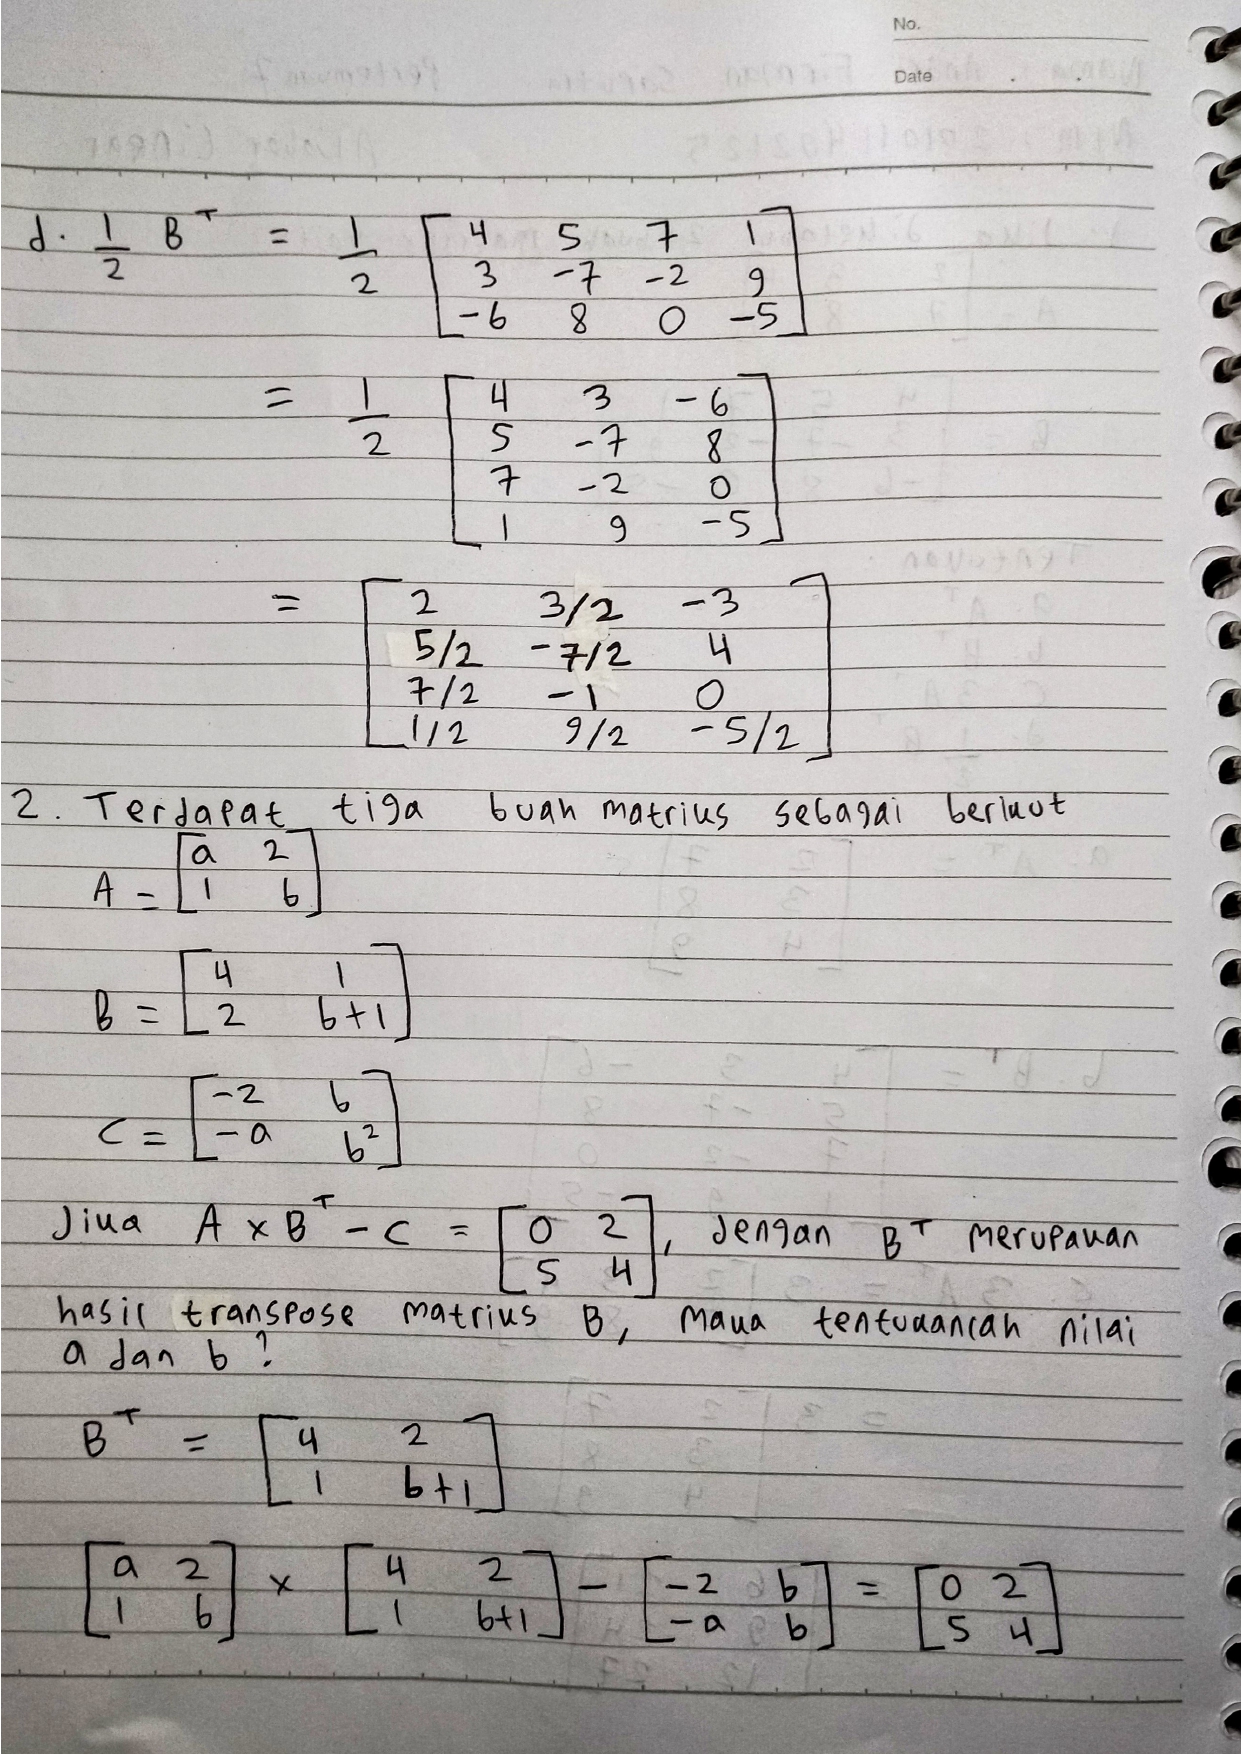 No.
Date
d. 1/2 B^T = 1/2 [4 5 7 1
3 -7 -2 9
-6 8 0 -5]
= 1/2 [4 3 -6
5 -7 8
7 -2 0
1 9 -5]
= [2 3/2 -3
5/2 -7/2 4
7/2 -1 0
1/2 9/2 -5/2]
2. Terdapat tiga buah matriks sebagai berikut
A = [a 2
1 b]
B = [4 1
2 b+1]
C = [-2 b
-a b²]
Jika A x B^T - C = [0 2
5 4], dengan B^T merupakan
hasil transpose matriks B, maka tentukanlah nilai
a dan b?
B^T = [4 2
1 b+1]
[a 2
1 b] x [4 2
1 b+1] - [-2 b
-a b] = [0 2
5 4]